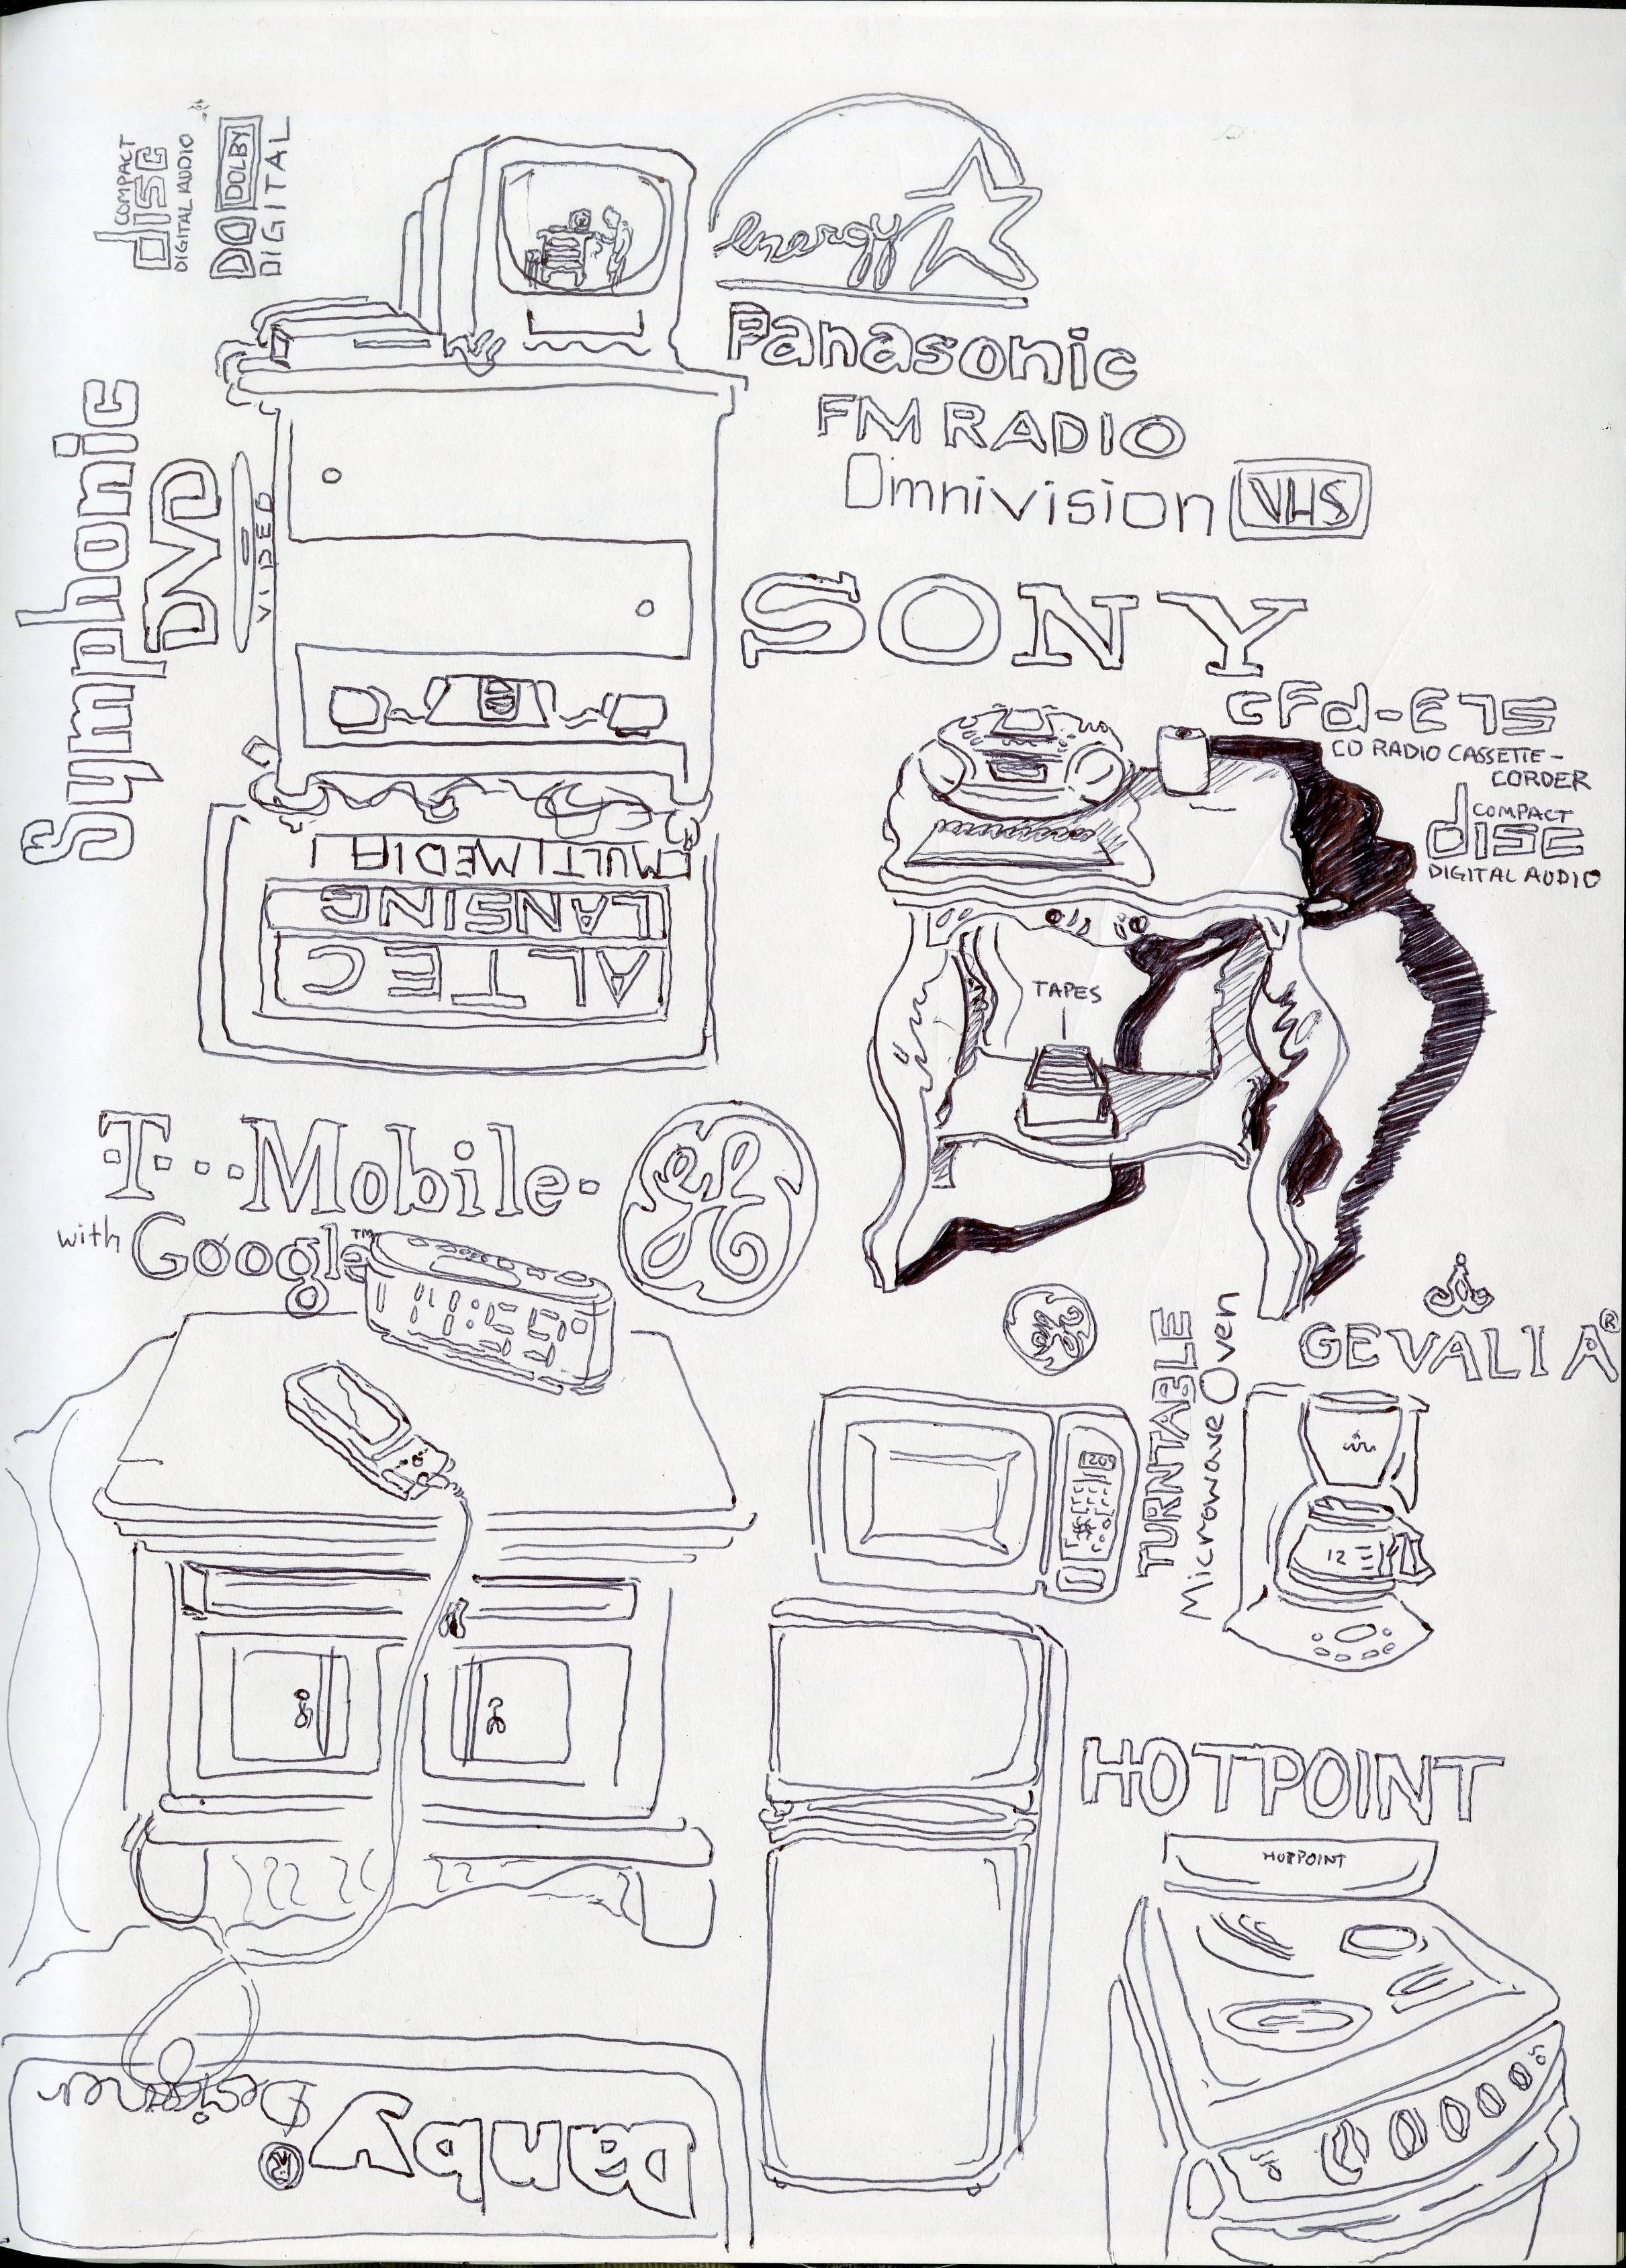 COMPACT
disc
DIGITAL AUDIO
DOLBY
DIGITAL
energy
Panasonic
FM RADIO
Omnivision VHS
Symphonic
DVD
VIDEO
SONY
CFD-E75
CD RADIO CASSETTE-
CORDER
COMPACT
disc
DIGITAL AUDIO
MULTIMEDIA
LANSING
ALTEC
TAPES
T··Mobile·
with Google™
GE
11:59
GE
TURNTABLE
Microwave Oven
GEVALIA®
12
HOTPOINT
HOTPOINT
Danby®
Designer